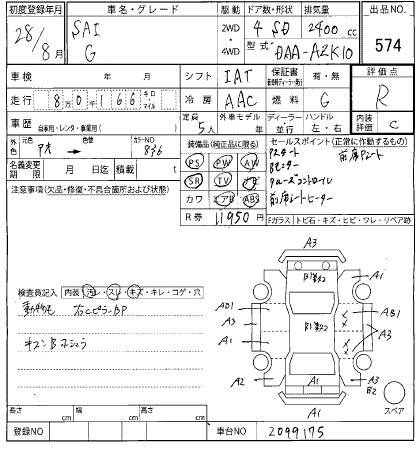 初度登録年月 車名・グレード 駆動 ドア数・形状 排気量 出品NO.
28/8月 SAI G 2WD・4WD 4 SD 2400cc 574
型式 DAA-AZK10
車検 年 月 シフト IAT 保証書 有・無 評価点
走行 8万0千166 キロ マイル 冷房 AAC 燃料 G R
車歴 自家用・レンタ・事業用( ) 定員 5人 外車モデル 年 ディーラー・並行 ハンドル 左・右 内装評価 C
外色 元色 色 カラーNO 836
名義変更期限 月 日迄 積載 t
装備品(純正品に限る)
PS PW AW
SR TV ナビ
カワ エアB ABS
R券 11950円
セールスポイント(正常に作動するもの)
Pスタート
Bモニター
クルーズコントロール
前席シートヒーター
前席Pシート
注意事項(欠品・修復・不具合箇所および状態)
Fガラス トビ石・キズ・ヒビ・ワレ・リペア跡
検査員記入 内装 汚レ・スレ・キズ・キレ・コゲ・穴
右CピラーBP
A3
A1
AB1
A3
A1
A2
A1
A1
A3
B2
AB1
A3
スペア
長さ cm 幅 cm 高さ cm
登録NO 車台NO 2099175